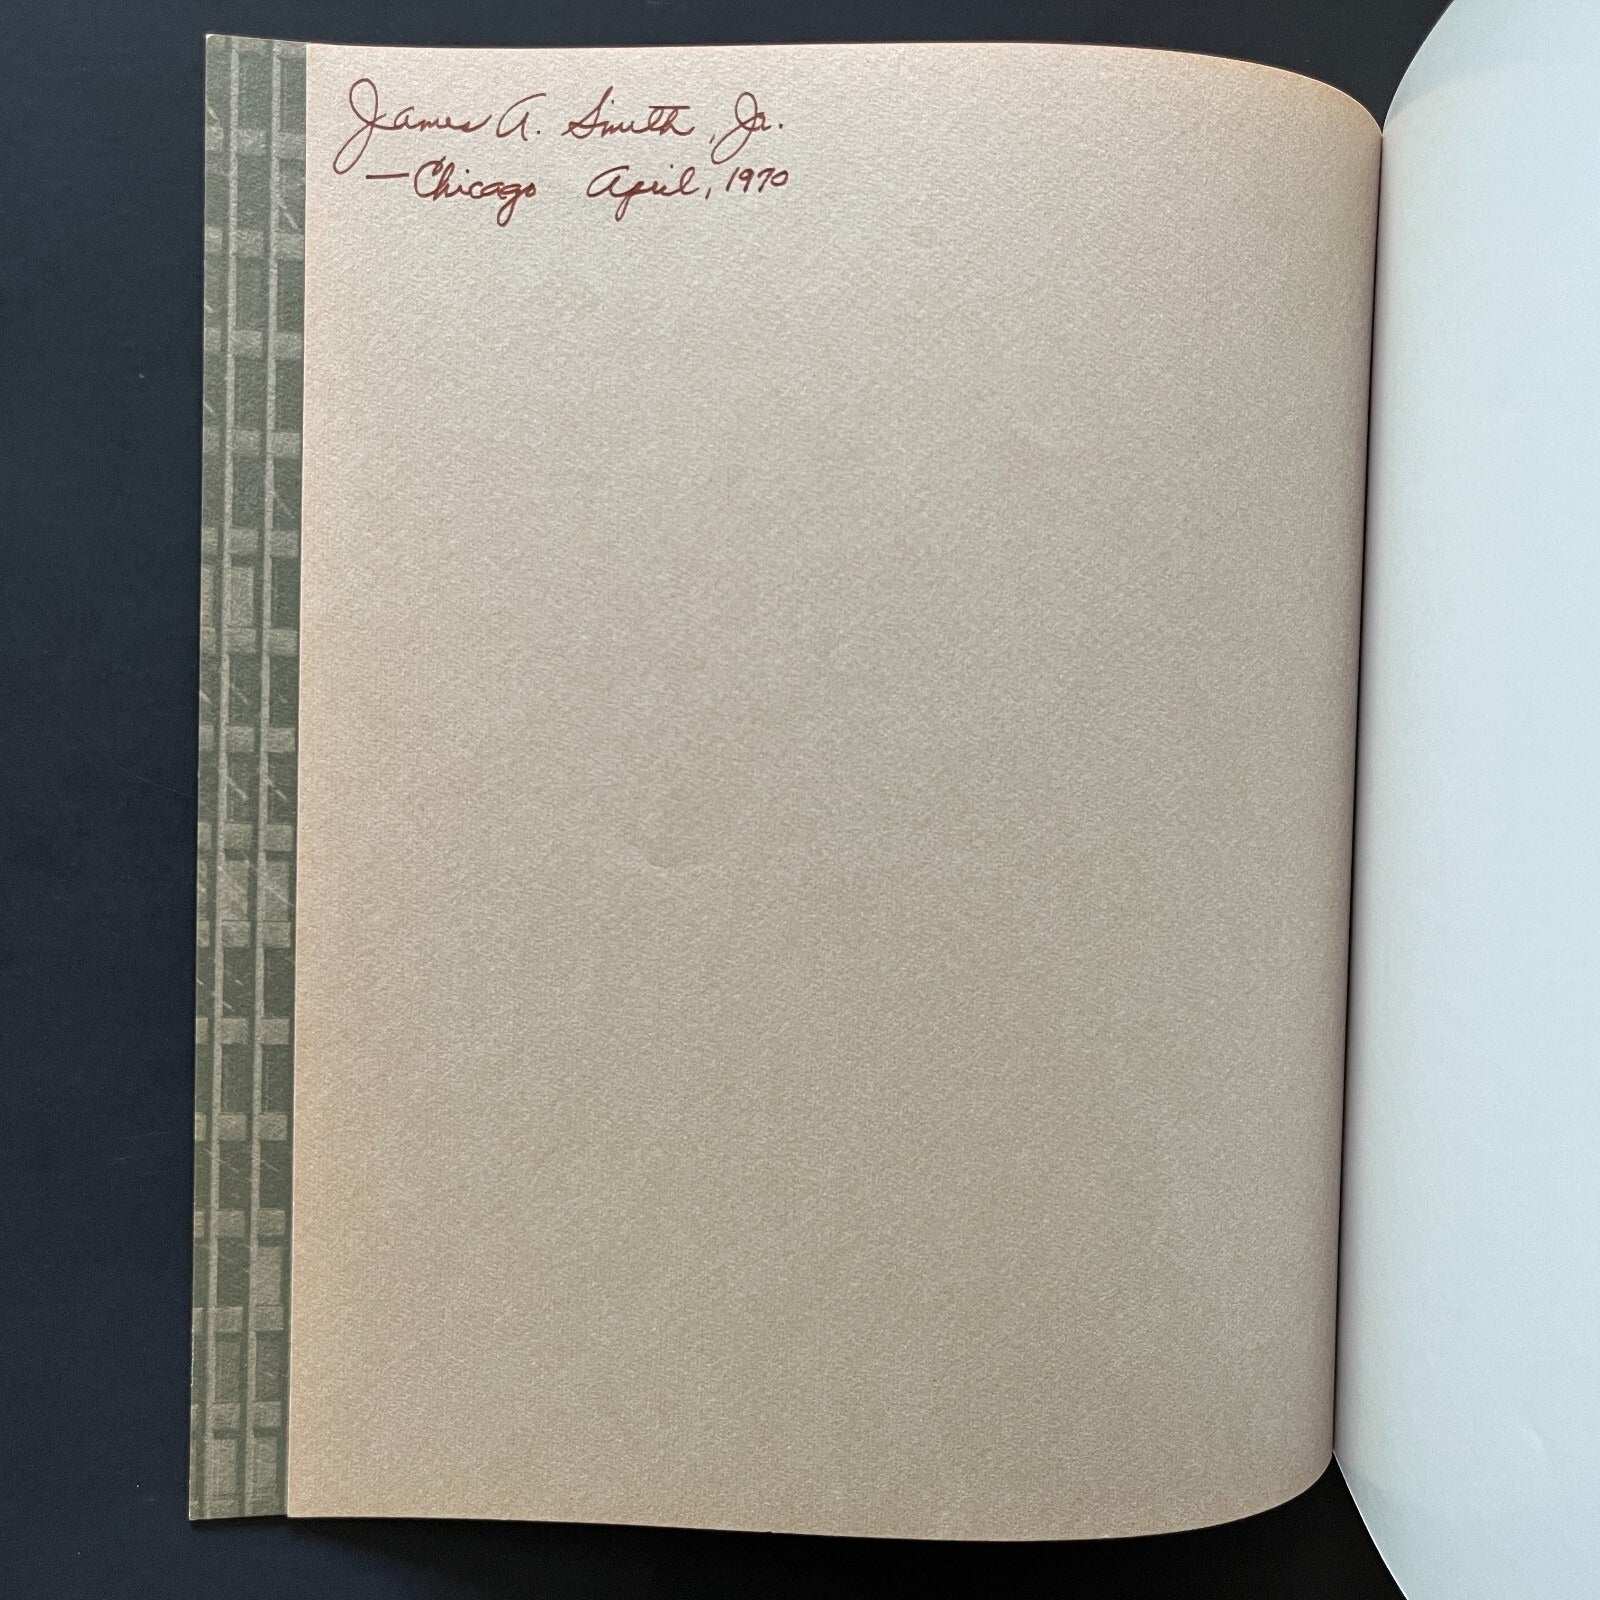 James A. Smith, Jr.
—Chicago April, 1970